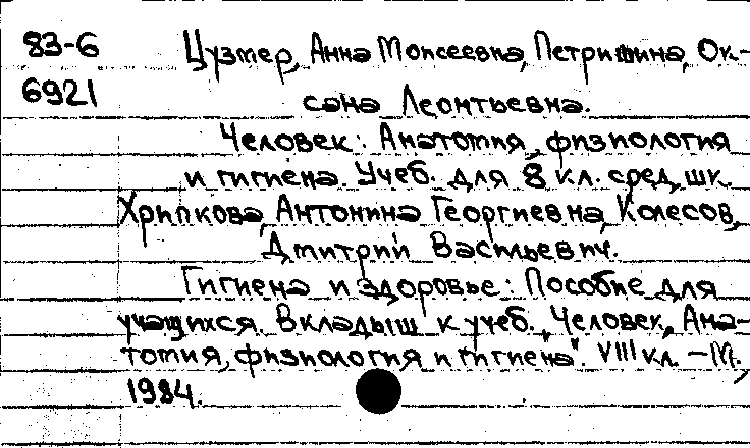 83-6 Цузмер, Анна Моисеевна, Петришина, Ок-
6921 сана Леонтьевна.
Человек: Анатомия, физиология
и гигиена. Учеб. для 8 кл. сред. шк.
Хрипкова, Антонина Георгиевна, Колесов,
Дмитрий Васильевич.
Гигиена и здоровье: Пособие для
учащихся. Вкладыш к учеб. "Человек, Ана-
томия, физиология и гигиена". VIII кл. - М.,
1984.